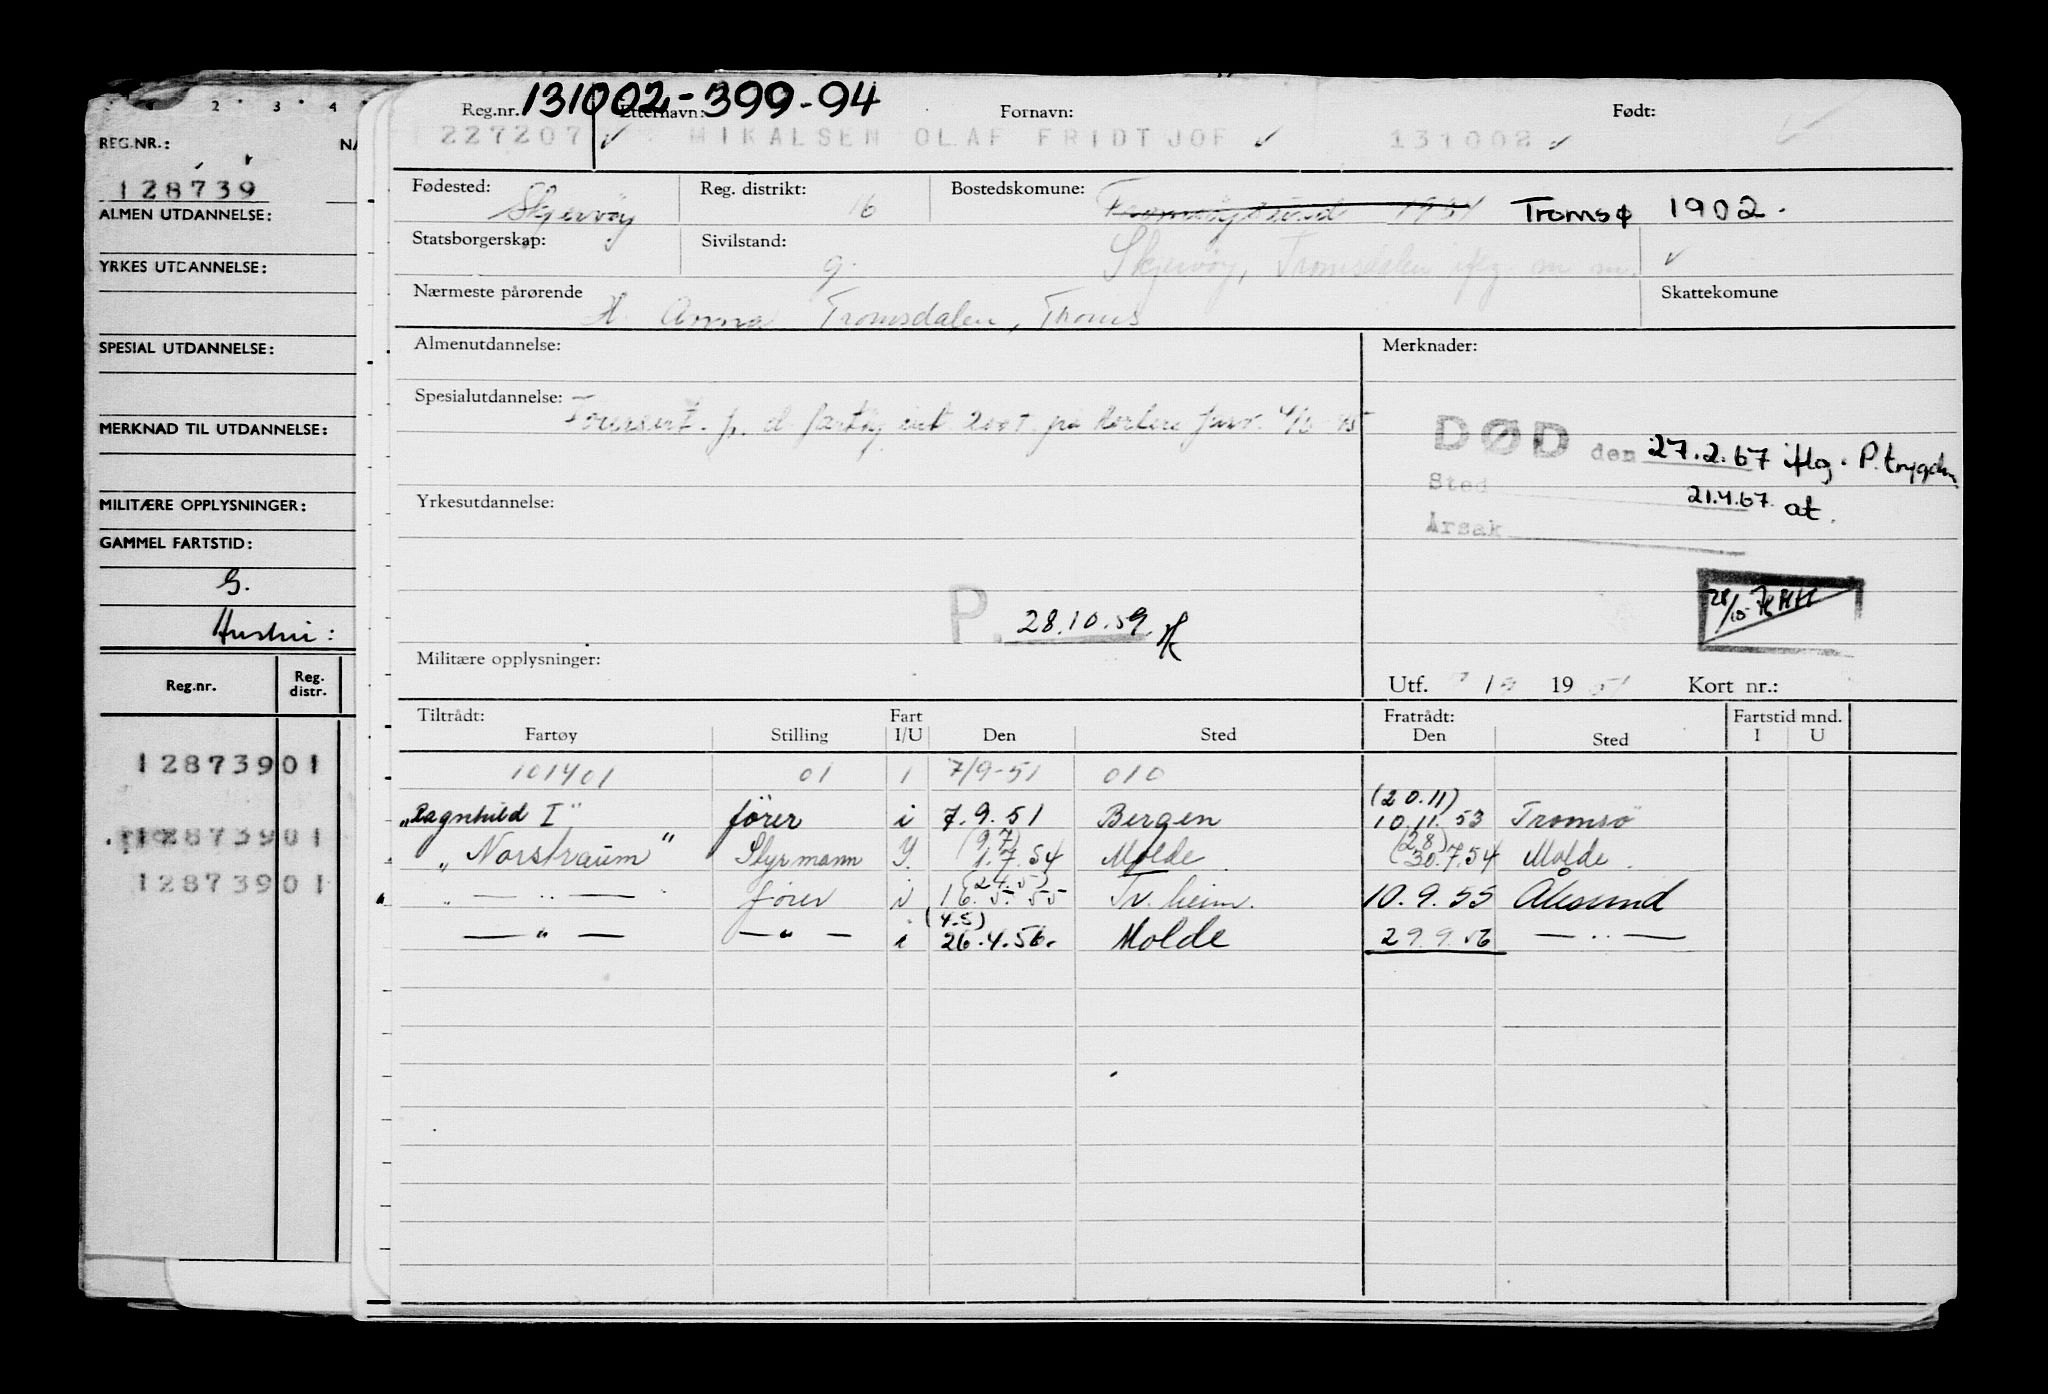 2 3 4
REG.NR.:
NA
128739
ALMEN UTDANNELSE:
YRKES UTDANNELSE:
SPESIAL UTDANNELSE:
MERKNAD TIL UTDANNELSE:
MILITÆRE OPPLYSNINGER:
GAMMEL FARTSTID:
G.
Hustru:
Reg.nr. Reg. distr.
128739 01
128739 01
128739 01
131002-399-94
Reg.nr. Etternavn: Fornavn: Født:
227207 MIKALSEN OLAF FRIDTJOF 131002
Fødested: Skjervøy Reg. distrikt: 16 Bostedskommune: Tromsø 1902.
Statsborgerskap: Sivilstand: g. Skjervøy, Tromsdalen iflg. m m.
Nærmeste pårørende H. Anna Tromsdalen, Troms Skattekomune
Almenutdannelse: Merknader:
Spesialutdannelse:
DØD den 27.2.67 iflg. P.trygden
Sted 21.4.67 at.
Årsak
Yrkesutdannelse:
P. 28.10.59.
28/10
Militære opplysninger:
Utf. 19 51 Kort nr.:
Tiltrådt: Fart Fratrådt: Fartstid mnd.
Fartøy Stilling I/U Den Sted Den Sted I U
101401 01 1 7/9-51 010
„Ragnhild I" fører i 7.9.51 Bergen (20.11) 10.11.53 Tromsö
„Norstraum" Styrmann (9.7) 1.7.54 Molde (2.8) 30.7.54 Molde.
— „ — fører i (24.5) 16.5.55 Tr.heim. 10.9.55 Ålesund
— „ — — „ — i (4.5) 26.4.56. Molde 29.9.56 — „ —